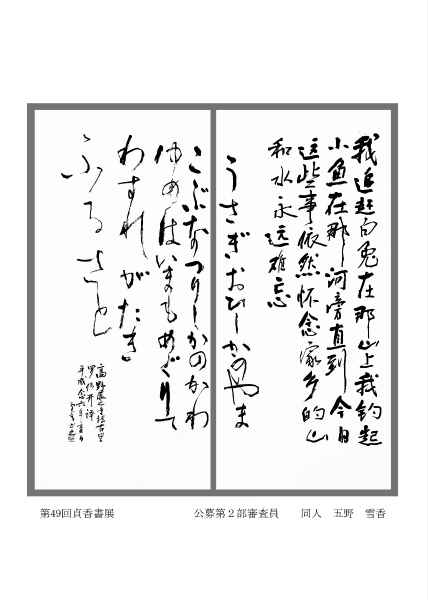 我追赶白兔在那山上我钓起
小鱼在那河旁直到今日
这些事依然怀念家乡的山
和水永远难忘
うさぎおひしかのやま
こぶなつりしかのかわ
ゆめはいまもめぐりて
わすれがたき
ふるさと
高野辰之
第49回貞香書展 公募第２部審査員 同人 五野 雪香